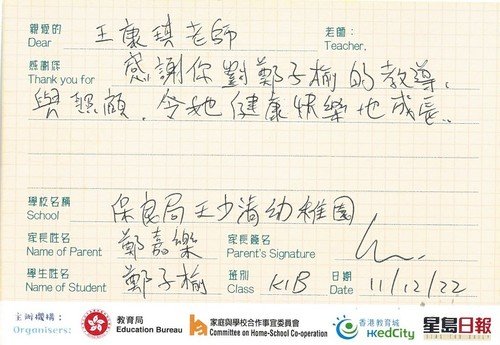 親愛的 王康琪老師 老師：
Dear Teacher,
感謝您 感謝你對鄭子榆的教導，
Thank you for
與照顧，令她健康快樂地成長。
學校名稱
School 保良局王少清幼稚園
家長姓名 鄭嘉樂 家長簽名
Name of Parent Parent's Signature
學生姓名 鄭子榆 班別 K1B 日期 11/12/22
Name of Student Class Date
主辦機構：
Organisers:
教育局
Education Bureau
家庭與學校合作事宜委員會
Committee on Home-School Co-operation
香港教育城
HKedCity
星島日報
SING TAO DAILY